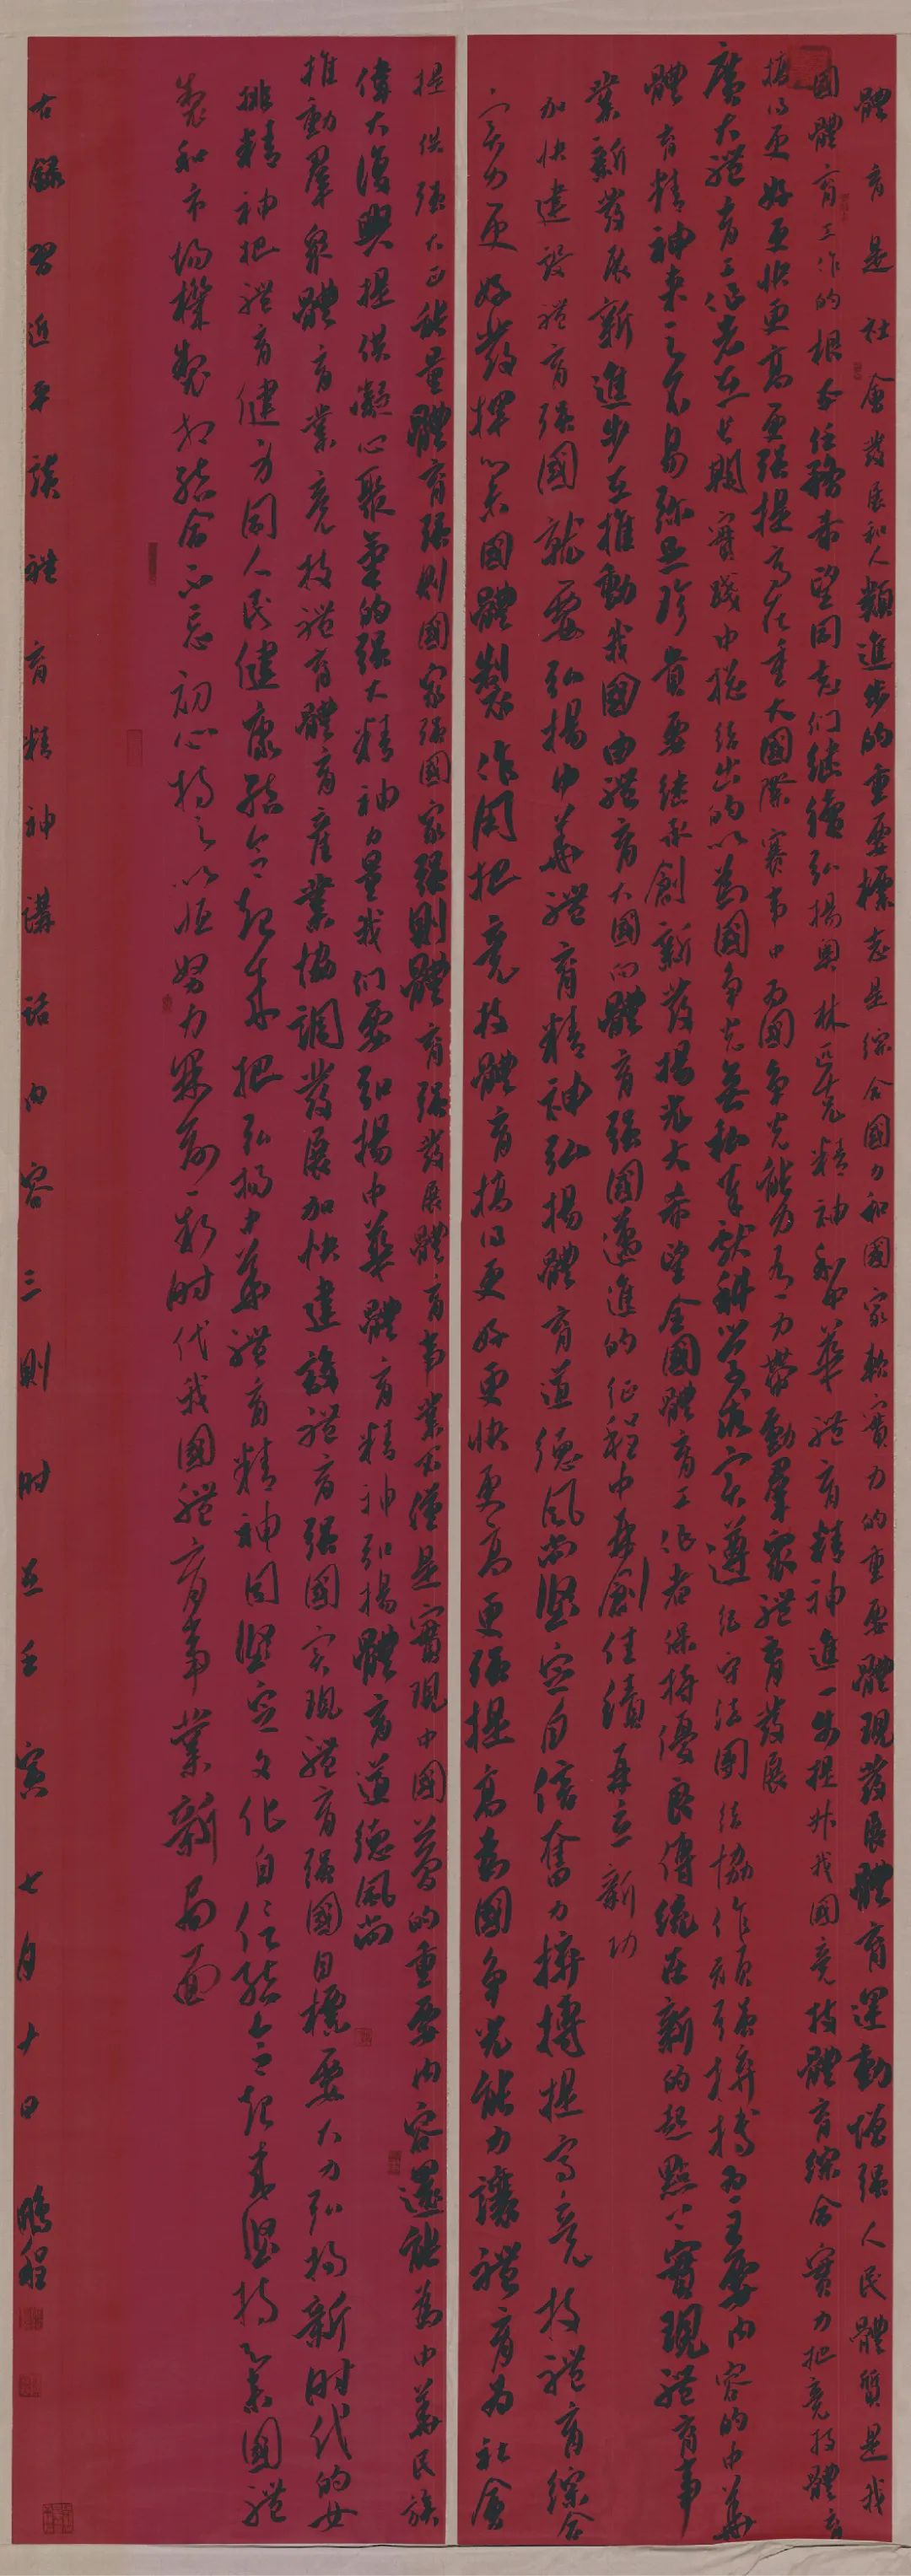 體育是社會發展和人類進步的重要標志是綜合國力和國家軟實力的重要體現發展體育運動增强人民體質是我
國體育工作的根本任務希望同志们继續弘揚奥林匹克精神和中華體育精神進一步提升我國竞技體育綜合實力把竞技體育
搞得更好更快更高更强提高在重大國際賽事中为國争光能力着力帶動羣衆體育發展
廣大體育工作者在长期實踐中總结出的以為國争光無私奉献科学求实遵纪守法團结協作頑强拼搏为主要内容的中華
體育精神来之不易弥足珍貴要继承創新發揚光大希望全國體育工作者保持優良傳統在新的起點上實現體育事
業新發展新進步在推動我國由體育大國向體育强國邁進的征程中再創佳績再立新功
加快建設體育强國就要弘揚中華體育精神弘揚體育道德風尚堅定自信奮力拼搏提高竞技體育綜合
实力更好發揮举國體製作用把竞技體育搞得更好更快更高更强提高為國争光能力讓體育为社會
提供强大正能量體育强則國家强國家强則體育强發展體育事業不僅是實現中國夢的重要内容還能為中華民族
偉大復興提供凝心聚氣的强大精神力量我们要弘揚中華體育精神弘揚體育道德風尚
推動羣衆體育業竞技體育體育産業協調發展加快建設體育强國实現體育强國目標要大力弘揚新时代的女
排精神把體育健身同人民健康結合起来把弘揚中華體育精神同堅定文化自信結合起来堅持举國體
製和市場機製相結合不忘初心持之以恒努力開創新时代我國體育事業新局面
右録習近平談體育精神講話内容三則时在壬寅七月十日鵬程